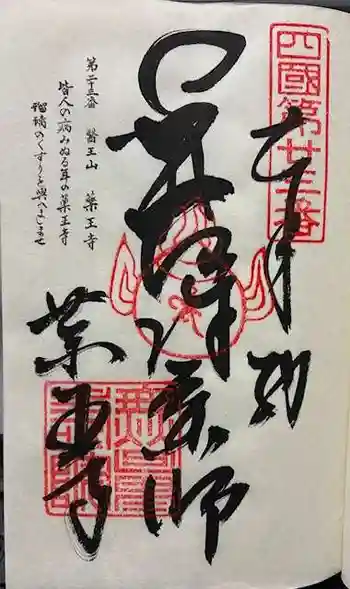 四國第廿三番
奉納
薬師
薬王寺
第二十三番 醫王山 薬王寺
皆人の病みぬる年の薬王寺
瑠璃のくすりを與へましませ